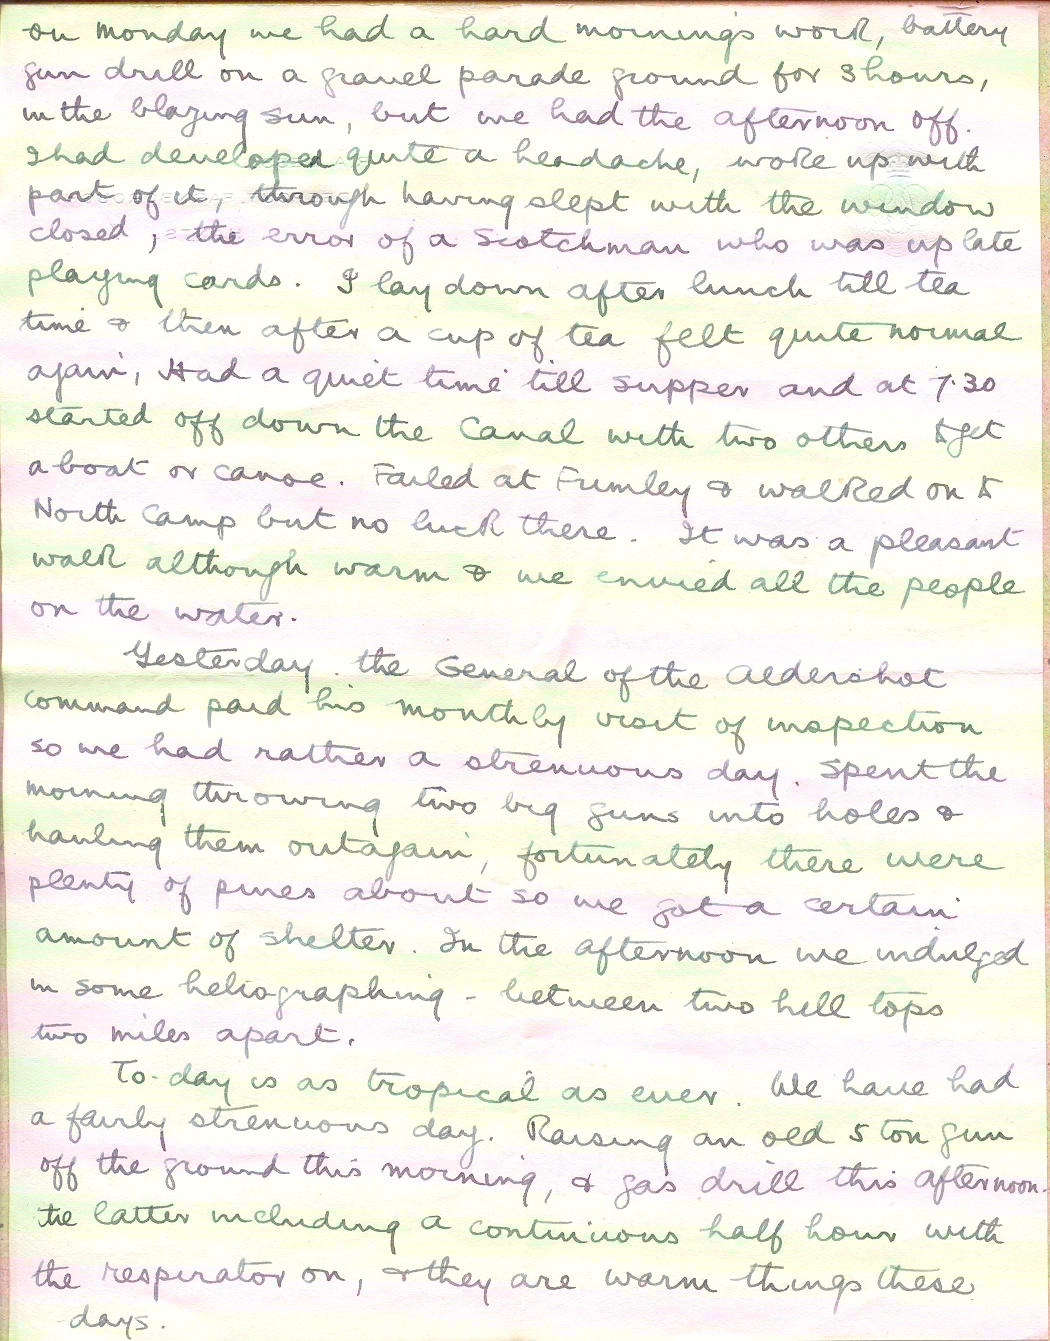 on Monday we had a hard morning's work, battery
gun drill on a gravel parade ground for 3 hours,
in the blazing sun, but we had the afternoon off.
I had developed quite a headache, woke up with
part of it, through having slept with the window
closed, the error of a Scotchman who was up late
playing cards. I lay down after lunch till tea
time & then after a cup of tea felt quite normal
again, Had a quiet time till supper and at 7.30
started off down the Canal with two others to get
a boat or canoe. Failed at Frimley & walked on to
North Camp but no luck there. It was a pleasant
walk although warm & we envied all the people
on the water.
Yesterday the General of the Aldershot
command paid his monthly visit of inspection
so we had rather a strenuous day. Spent the
morning throwing two big guns into holes &
hauling them out again, fortunately there were
plenty of pines about so we got a certain
amount of shelter. In the afternoon we indulged
in some heliographing - between two hill tops
two miles apart.
To-day is as tropical as ever. We have had
a fairly strenuous day. Raising an old 5 ton gun
off the ground this morning, & gas drill this afternoon -
the latter including a continuous half hour with
the respirator on, & they are warm things these
days.